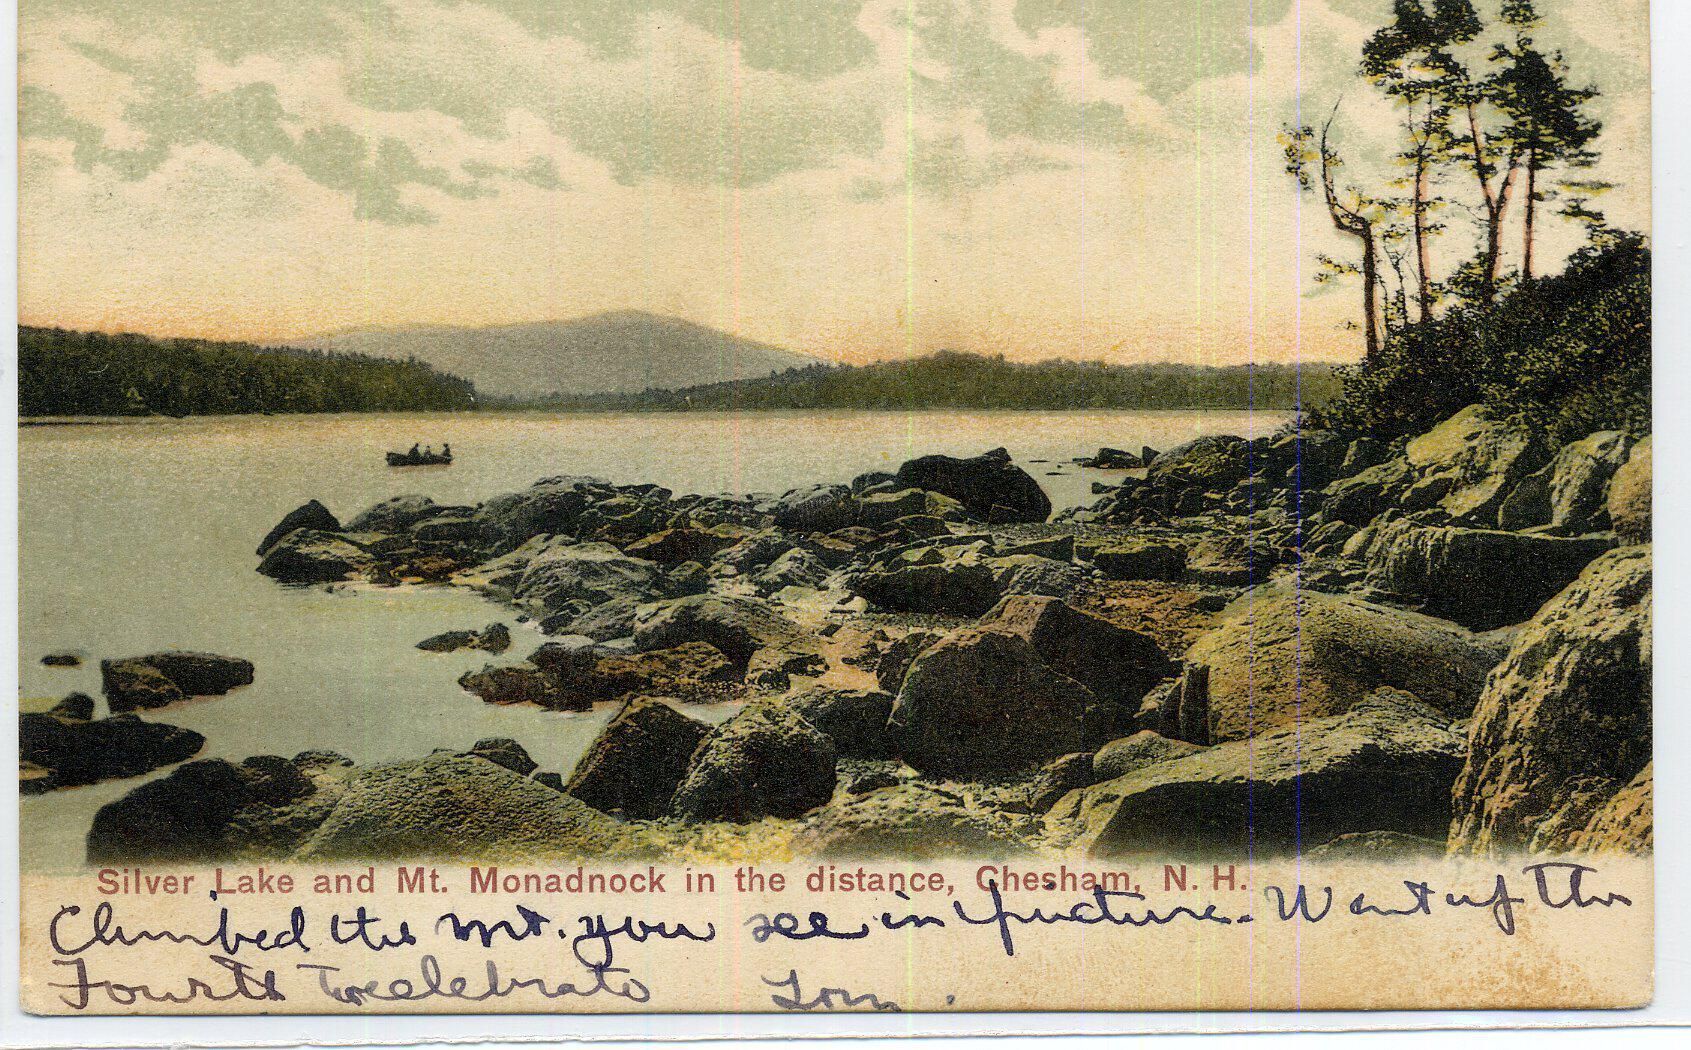 Silver Lake and Mt. Monadnock in the distance, Chesham, N. H.
Climbed the Mt. you see in picture. Went up The
Fourth To celebrate Tom.